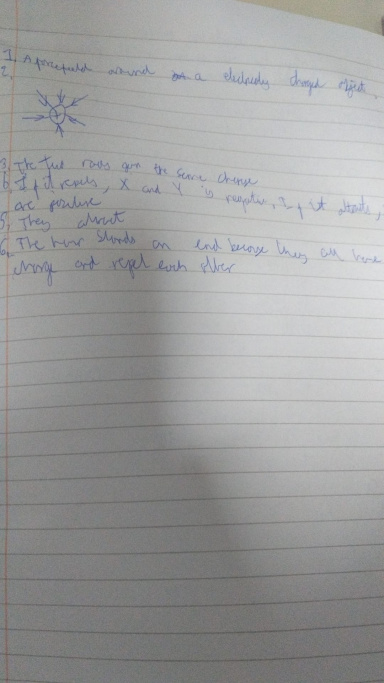 1. A forcefield around a electricaly charged object.
2.
+
3. The two rods gain the same charge
b If it repels, X and Y is negative, If it attracts,
are positive
5, They attract
6. The hair stands on end because they all have
charge and repel each other